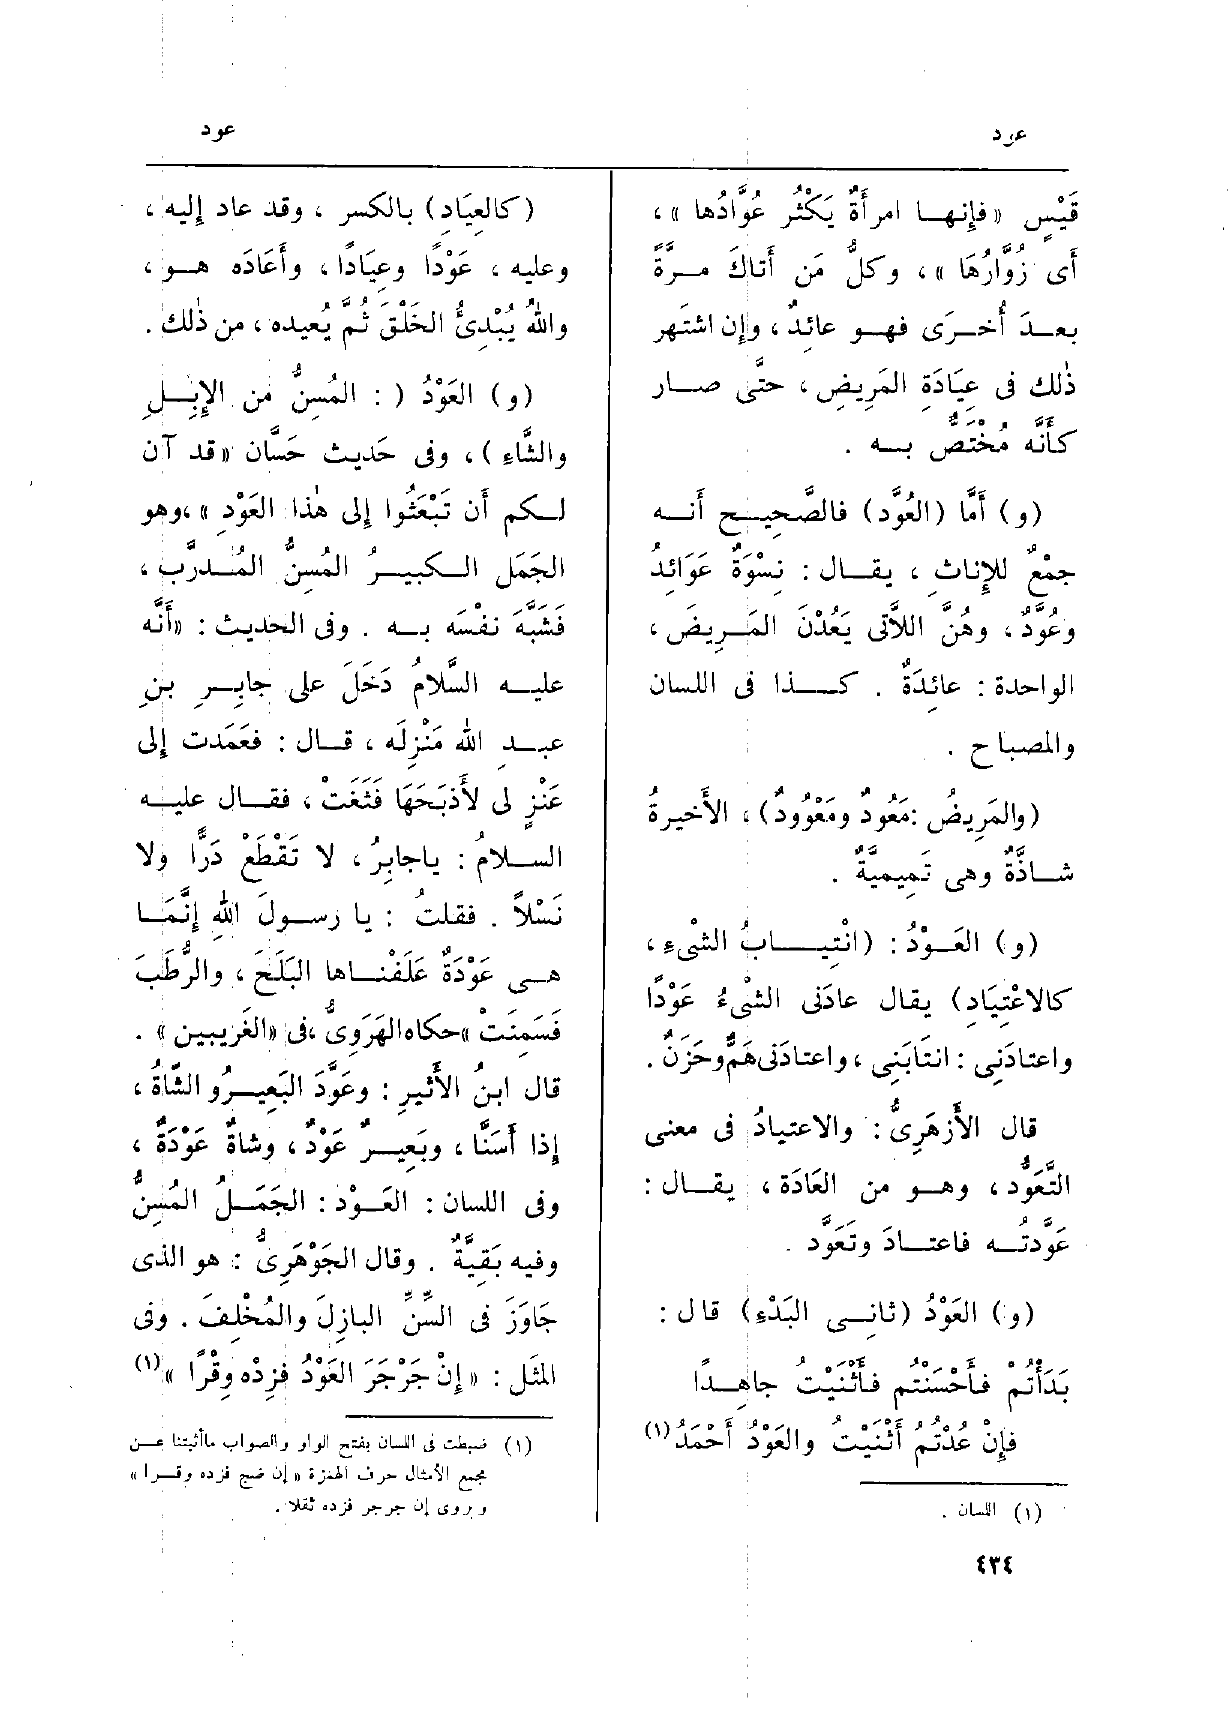 عود
قَيْسٍ « فإنهـا امرأةٌ يَكْثُر عُوَّادُها » ،
أى زُوَّارُهَا » ، وكلُّ مَن أتاكَ مـرةً
بعـدَ أُخـرَى فهـو عائدٌ ، وإن اشتهر
ذٰلك فى عِيَادَةِ المَرِيضِ ، حتَّى صـار
كأَنَّه مُختَصٌّ بـه .
( و ) أَمَّا ( العُوَّد ) فالصَّحِيـح أنـه
جمْعٌ للإناث ، يقـال : نِسْوَةٌ عَوَائدُ
وعُوَّدٌ ، وهُنَّ اللاَّتى يَعُدْنَ المَـرِيضَ ،
الواحدة : عائِدَةٌ . كـذا فى اللسان
والمصباح .
( والمَرِيضُ : مَعُودٌ ومَعْوُودٌ ) ، الأَخيرةُ
شـاذَّةٌ وهى تَمِيمِيةٌ .
( و ) العَـوْدُ : ( انْتِيـابُ الشىْءِ ،
كالاعْتِيَادِ ) يقال عادَنى الشىْءُ عَوْدًا
واعتادَنِى : انتابَنِى ، واعتادَنى هَمٌّ وحَزَنٌ .
قال الأَزهَرِىُّ : والاعتيادُ فى معنى
التَّعَوُّد ، وهـو من العَادَة ، يقـال :
عَوَّدتُـه فاعتـادَ وتَعَوَّد .
( و ) العَوْدُ ( ثانِـى البَدْءِ ) قال :
بَدَأْتُم فـأَحْسَنْتم فـأَثْنَيْتُ جاهِـدًا
فإِنْ عُدْتُمُ أَثْنَيْتُ والعَوْدُ أَحْمَدُ (١)
(١) اللسان .
٤٣٤
عود
( كالعِيَادِ ) بالكسر ، وقد عاد إليه ،
وعليه ، عَوْدًا وعِيَادًا ، وأَعَادَه هـو ،
واللهُ يُبْدِئُ الخَلْقَ ثُمَّ يُعيده ، من ذٰلك .
( و ) العَوْدُ ( : المُسِنُّ من الإِبِـلِ
والشَّاءِ ) ، وفى حَديث حَسَّان « قد آن
لـكم أَن تَبْعَثُوا إِلى هٰذا العَوْدِ » ، وهو
الجَمَل الـكَبيـرُ المُسِنُّ المُـدرَّب ،
فَشَبَّهَ نفْسَه بـه . وفى الحديث : « أَنَّه
عليـه السَّلامُ دَخَلَ على جابِـرِ بنِ
عبـد الله مَنْزِلَه ، قـال : فعَمَدت إِلى
عَنْزٍ لى لأَذبَحَهَا فَثَغَتْ ، فقـال عليـه
السـلامُ : ياجابِرُ ، لا تَقْطَعْ دَرًّا ولا
نَسْلاً . فقلتُ : يا رسـولَ اللهِ إِنَّمَـا
هـى عَوْدَةٌ عَلَفْنـاها البَلَحَ ، والرُّطَبَ
فَسَمِنَت » حكاه الهَرَوِىُّ ، فى « الغَرِيبين » .
قال ابنُ الأَثيرِ : وعَوَّدَ البَعِيـرُ و الشَّاةُ ،
إِذا أَسَنَّا ، وبَعِيـرٌ عَوْدٌ ، وشاةٌ عَوْدَةٌ ،
وفى اللسان : العَـوْد : الجَمَـلُ المُسِنُّ
وفيه بَقِيَّةٌ . وقال الجَوْهَرِىُّ : هو الذى
جَاوَزَ فى السِّنِّ البازِلَ والمُخْلِفَ . وفى
المثَل : « إِنْ جَرْجَرَ العَوْدُ فزِدْه وِقْرًا » (١)
(١) ضبطت فى اللسان بفتح الواو والصواب ماأثبتنا عـن
مجمع الأمثال حرف الهمزة « إن ضج فزده وقـرا »
ويروى إن جرجر فزده ثقلا .